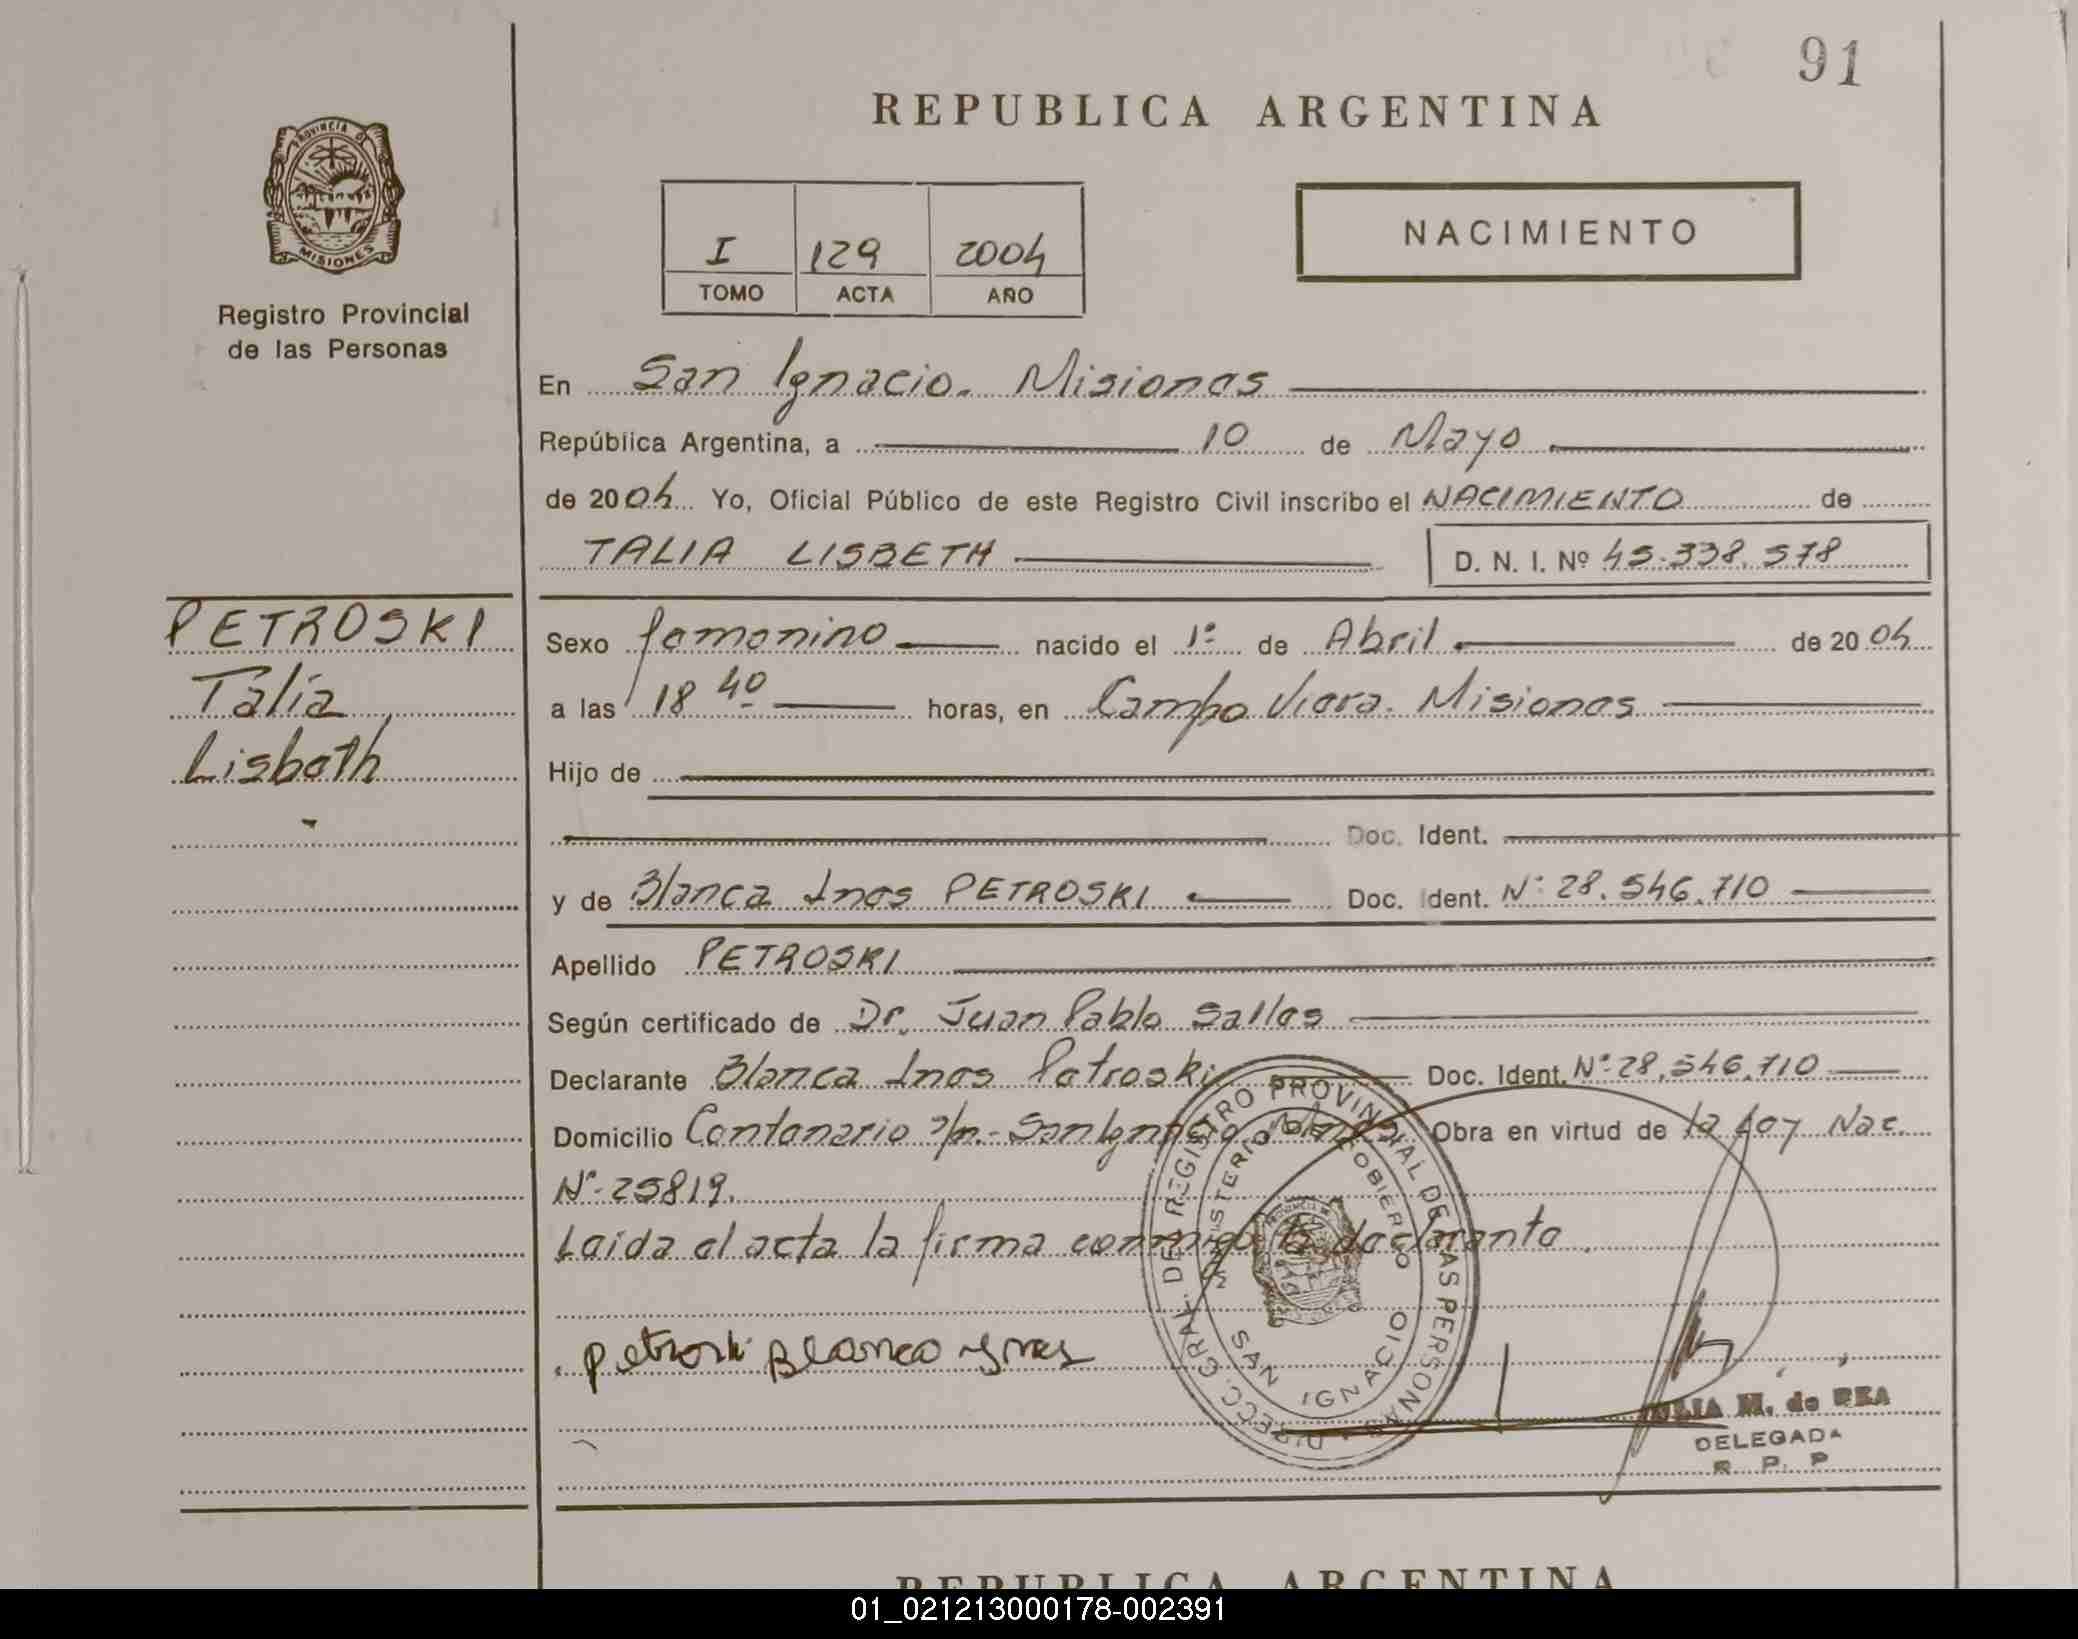 91
REPUBLICA ARGENTINA
PROVINCIA DE
MISIONES
Registro Provincial
de las Personas
I 129 2004
TOMO ACTA AÑO
NACIMIENTO
En San Ignacio. Misiones
República Argentina, a 10 de Mayo
de 2004 Yo, Oficial Público de este Registro Civil inscribo el NACIMIENTO de
TALIA LISBETH D. N. I. Nº 45.338.578
PETROSKI
Talia
Lisbeth
Sexo femenino nacido el 1º de Abril de 2004
a las 18 40 horas, en Campo Viera. Misiones
Hijo de
Doc. Ident.
y de Blanca Ines PETROSKI Doc. Ident. Nº 28.546.710
Apellido PETROSKI
Según certificado de Dr. Juan Pablo Salles
Declarante Blanca Ines Petroski Doc. Ident. Nº 28.546.710
Domicilio Centenario s/n.- San Ignacio Mnes. Obra en virtud de la Ley Nac.
Nº 25819.
Leida el acta la firma conmigo la declarante.
Petroski Blanca Ines
DIRECC. GRAL. DEL REGISTRO PROVINCIAL DE LAS PERSONAS
MINISTERIO DE GOBIERNO
SAN IGNACIO
M. de REA
DELEGADA
R. P. P
REPUBLICA ARGENTINA
01_021213000178-002391